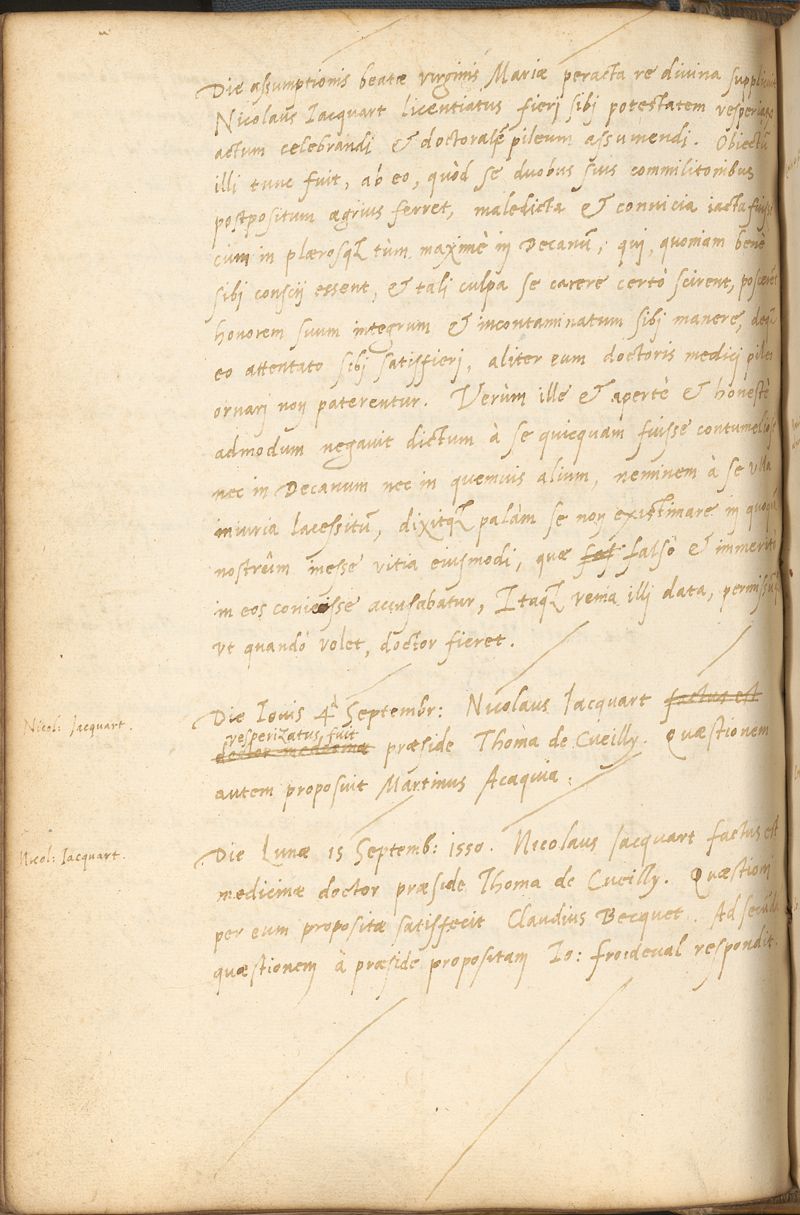 Die assumptionis beatæ virginis Mariæ peracta re divina supplicuit
Nicolaus Iacquart licentiatus fierj sibj potestatem vesperiarum
actum celebrandi & doctoralē pileum assumendi. Obiectū
illi tunc fuit, ab eo, quòd se duobus suis commilitonibus
postpositum ægrius ferret, maledicta & convicia iacta fuisse
cùm in plærosq tùm maximè in Decanū, quj, quoniam benè
sibj conscij essent, & tali culpa se carere certò scirent, poscerēt
honorem suum integrum & incontaminatum sibj manere, deq
eo attentato sibj satisfierj, aliter eum doctoris medicj pileo
ornarj non paterentur. Verùm ille & apertè & honestè
admodum negavit dictum à se quicquam fuisse contumeliosè
nec in Decanum nec in quemvis alium, neminem à se ulla
iniuria lacessitū, dixitq palàm se non existimare in quoquā
nostrûm inesse vitia eiusmodi, quæ falsò & immeritò
in eos coniecisse accusabatur, Itaq venia illj data, permissū
ut quando volet, doctor fieret.
Nicol: Jacquart.
Die Iovis 4ª Septembr: Nicolaus Jacquart factus est
vesperizatus fuit
doctor medicinæ præside Thòma de Cueilly. Quæstionem
autem proposuit Martinus Acaquia.
Nicol: Iacquart.
Die Lunæ 15 Septemb: 1550. Nicolaus Jacquart factus est
medicinæ doctor præside Thoma de Cueilly. Quæstionj
per eum propositæ satisffecit Claudius Becquet. Ad secundā
quæstionem à præside propositam Io: froideval respondit.